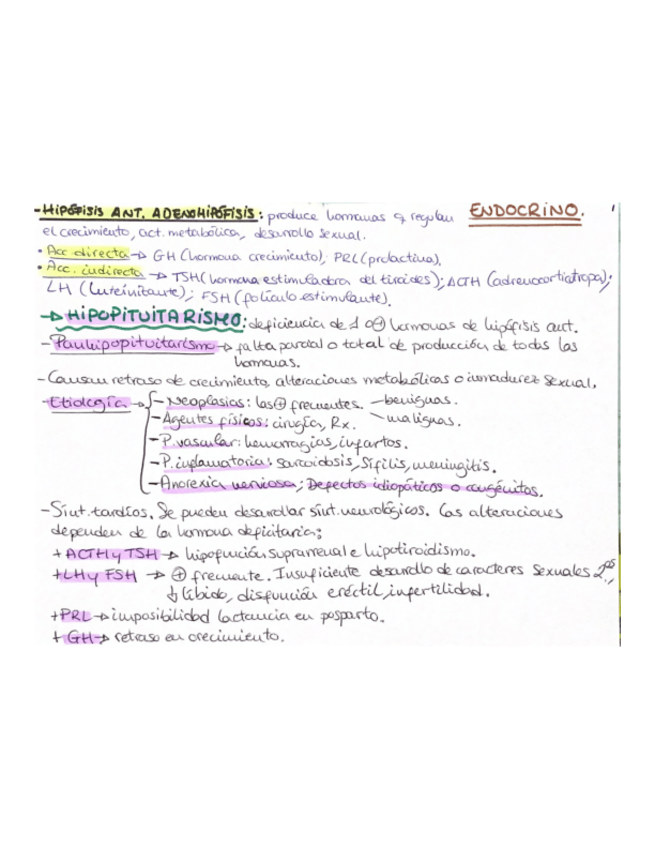 -HIPÓFISIS ANT. ADENOHIPÓFISIS: produce hormonas q regulan ENDOCRINO. 1
el crecimiento, act. metabólica, desarrollo sexual.
· Acc directa → GH (hormona crecimiento); PRL (prolactina).
· Acc. indirecta → TSH (hormona estimuladora del tiroides); ACTH (adrenocorticotropa);
LH (luteinizante); FSH (folículo estimulante).
→ HIPOPITUITARISMO: deficiencia de 1 o ⊕ hormonas de hipófisis ant.
- Panhipopituitarismo → falta parcial o total de producción de todas las
hormonas.
- Causan retraso de crecimiento, alteraciones metabólicas o inmadurez sexual.
- Etiología → - Neoplasias: las ⊕ frecuentes. - benignas.
- Agentes físicos: cirugía, Rx. - malignas.
- P. vascular: hemorragias, infartos.
- P. inflamatoria: sarcoidosis, sífilis, meningitis.
- Anorexia nerviosa; Defectos idiopáticos o congénitos.
- Sínt. tardíos. Se pueden desarrollar sínt. neurológicos. Las alteraciones
dependen de la hormona deficitaria:
+ ACTH y TSH → hipofunción suprarrenal e hipotiroidismo.
+ LH y FSH → ⊕ frecuente. Insuficiente desarrollo de caracteres sexuales 2ºˢ,
↓ libido, disfunción eréctil, infertilidad.
+ PRL → imposibilidad lactancia en posparto.
+ GH → retraso en crecimiento.